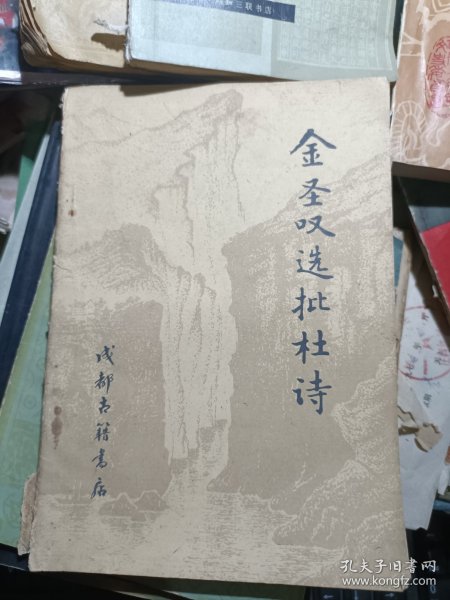 三联书店
金圣叹选批杜诗
成都古籍书店
孔夫子旧书网
www.kongfz.com